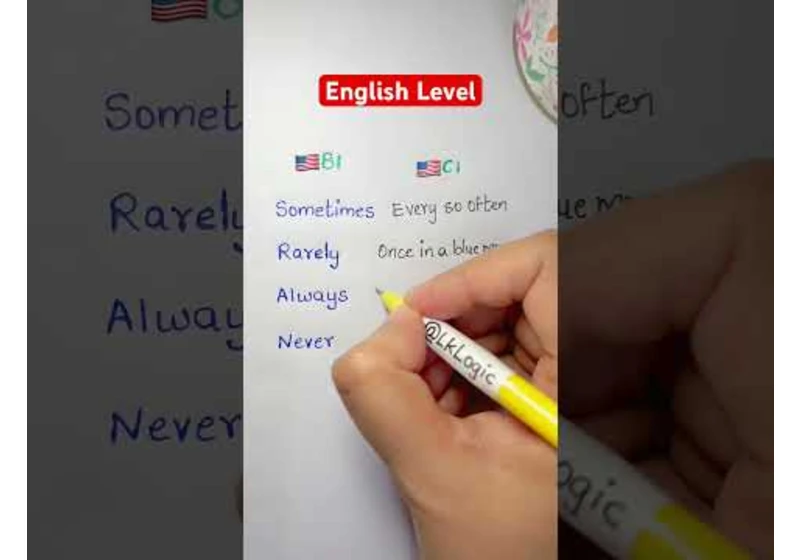 English Level
B1 C1
Sometimes Every so often
Rarely Once in a blue
Always
Never
@LKLogic